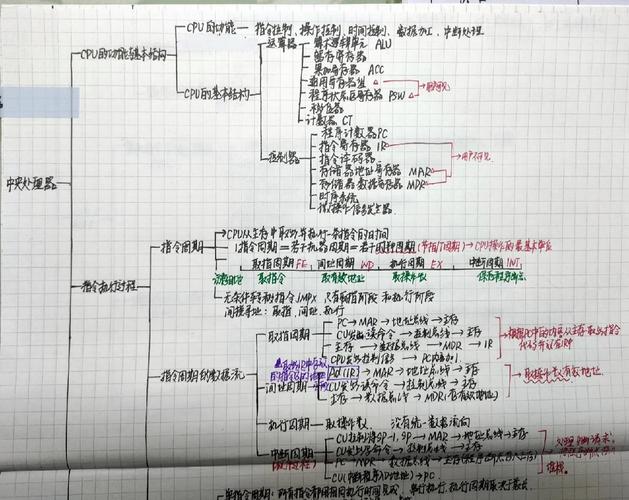 CPU的功能 — 指令控制、操作控制、时间控制、数据加工、中断处理
CPU的功能与基本结构
运算器
算术逻辑单元 ALU
暂存寄存器
累加寄存器 ACC
通用寄存器组
程序状态字寄存器 PSW
移位器
计数器 CT
CPU的基本结构
控制器
程序计数器PC
指令寄存器 IR
指令译码器
存储器地址寄存器 MAR
存储器数据寄存器 MDR
时序系统
微操作信号发生器
用户不可见
中央处理器
指令执行过程
指令周期
CPU从主存中取出并执行一条指令的时间
1指令周期=若干机器周期=若干时钟周期(节拍/T周期)→CPU操作的最基本单位
取指周期 FE 间址周期 IND 执行周期 EX 中断周期 INT
取指令 取有效地址 取操作数 保存程序断点
无条件转移指令JMPX 只有取指阶段和执行阶段
间接寻址：取指、间址、执行
指令周期的数据流
取指周期
PC→MAR→地址总线→主存
CU发出读命令→控制总线→主存
主存→数据总线→MDR→IR
CPU发出控制信号→PC内容加1
根据PC中的内容从主存取出指令代码并放在IR中
间址周期
Ad(IR)→MAR→地址总线→主存
CU发出读命令→控制总线→主存
主存→数据总线→MDR(存有效地址)
取操作数有效地址
执行周期 — 取操作数 没有统一数据流向
中断周期
CU控制将SP-1,SP→MAR→地址总线→主存
CU发出写命令→控制总线→主存
PC→MDR→数据总线→主存
CU(中断程序入口地址)→PC
处理中断请求
单指令周期：所有指令都用相同执行时间完成